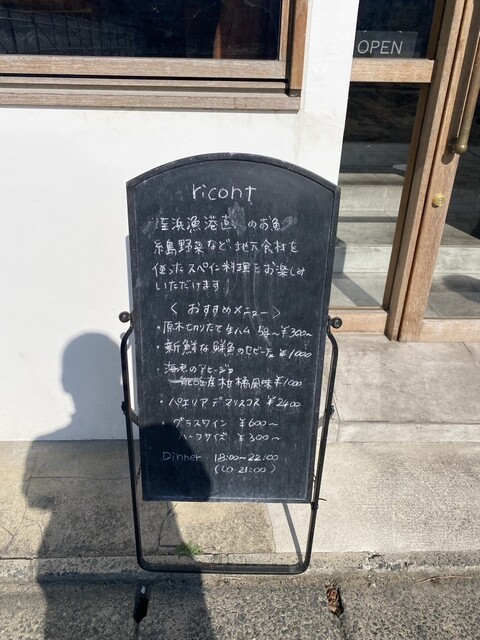 OPEN
ricont
姪浜漁港直 のお魚
糸島野菜など、地方食材を
使ったスペイン料理をお楽しみ
いただけます
〈 おすすめメニュー 〉
・原木切りたて生ハム 5g〜¥300〜
・新鮮な鮮魚のセビーチェ ¥1000
・海老のアヒージョ
能古島産柑橘風味 ¥1000
・パエリア デ マリスコス ¥2400
・グラスワイン ¥600〜
ハーフサイズ ¥300〜
Dinner 18:00〜22:00
(LO 21:00)